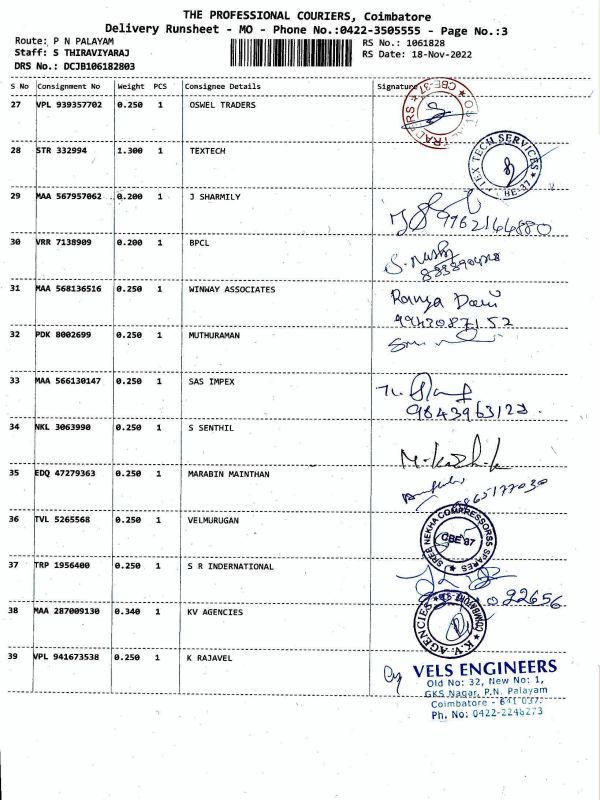 THE PROFESSIONAL COURIERS, Coimbatore
Delivery Runsheet - MO - Phone No.:0422-3505555 - Page No.:3
Route: P N PALAYAM RS No.: 1061828
Staff: S THIRAVIYARAJ RS Date: 18-Nov-2022
DRS No.: DCJB106182803
S No Consignment No Weight PCS Consignee Details Signature
27 VPL 939357702 0.250 1 OSWEL TRADERS
CBE-37
28 STR 332994 1.300 1 TEXTECH
TEX TECH SERVICES
29 MAA 567957062 0.200 1 J SHARMILY
9962144880
30 VRR 7138909 0.200 1 BPCL
31 MAA 568136516 0.250 1 WINWAY ASSOCIATES
Ranya Devi
9942087152
32 PDK 8002699 0.250 1 MUTHURAMAN
33 MAA 566130147 0.250 1 SAS IMPEX
9843963123
34 NKL 3063990 0.250 1 S SENTHIL
35 EDQ 47279363 0.250 1 MARABIN MAINTHAN
36 TVL 5265568 0.250 1 VELMURUGAN
SREE NEKHA COMPRESSORSS SPARES
CBE 37
37 TRP 1956400 0.250 1 S R INDERNATIONAL
38 MAA 287009130 0.340 1 KV AGENCIES
K.V. AGENCIES
39 VPL 941673538 0.250 1 K RAJAVEL
VELS ENGINEERS
Old No: 32, New No: 1,
GKS Nagar, P.N. Palayam
Coimbatore - 641 037.
Ph. No: 0422-2248273